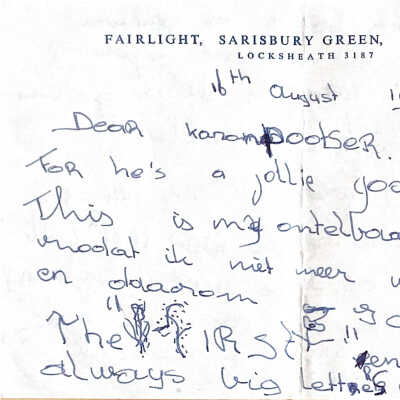 FAIRLIGHT, SARISBURY GREEN,
LOCKSHEATH 3187
16th August 19
Dear
For he's a jollie goo
This is my ontelbaa
ik niet meer
en daarom
"The FIRST"
always big letters